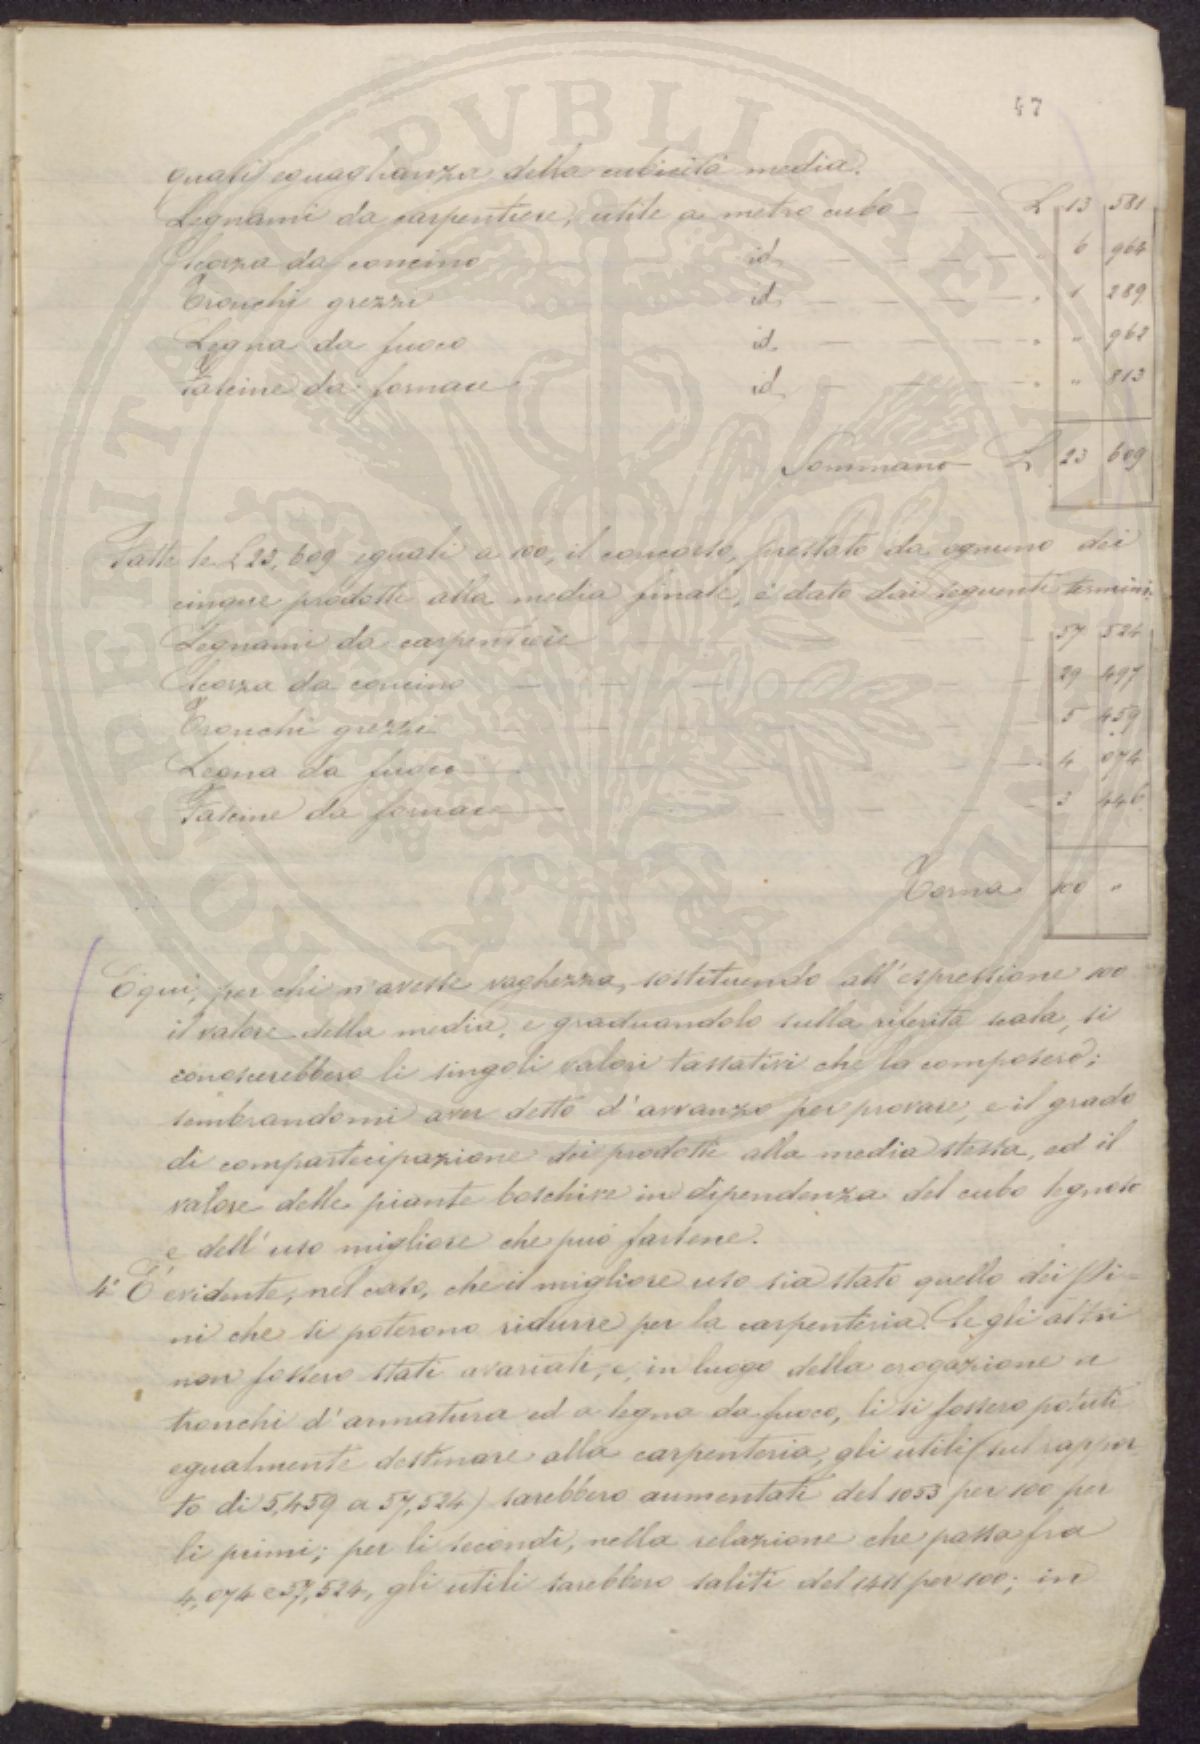 47
quasi eguaglianza della cubicità media.
Legnami da carpentiere, utile a metro cubo — — L 13 581
Scorza da concino id. — — — — — " 6 964
Tronchi grezzi id. — — — — — " 1 289
Legna da fuoco id. — — — — — " " 962
Fascine da fornace id. — — — — — " " 813
Sommano L 23 609
Fatte le L 23,609 eguali a 100, il concorso, prestato da ognuno dei
cinque prodotti alla media finale, è dato dai seguenti termini.
Legnami da carpentiere — — — 57 524
Scorza da concino — — — 29 497
Tronchi grezzi — — — 5 459
Legna da fuoco — — — 4 074
Fascine da fornace — — — 3 446
Torna 100 "
E qui, per chi n'avesse vaghezza, sostituendo all'espressione 100
il valore della media, e graduandolo sulla riferita scala, si
conoscerebbero li singoli valori tassativi che la composero;
sembrandomi aver detto d'avvanzo per provare, e il grado
di compartecipazione dei prodotti alla media stessa, ed il
valore delle piante boschive in dipendenza del cubo legnoso
e dell'uso migliore che può farsene.
4° È evidente, nel caso, che il migliore uso sia stato quello dei Pi=
ni che si poterono ridurre per la carpenteria. Se gli altri
non fossero stati avariati, e, in luogo della erogazione a
tronchi d'armatura ed a legna da fuoco, li si fossero potuti
egualmente destinare alla carpenteria, gli utili (sul rappor
to di 5,459 a 57,524) sarebbero aumentati del 1053 per 100 per
li primi; per li secondi, nella relazione che passa fra
4,074 e 57,524, gli utili sarebbero saliti del 1411 per 100; in
PROSPERITAS PVBLICAE TVENDAE